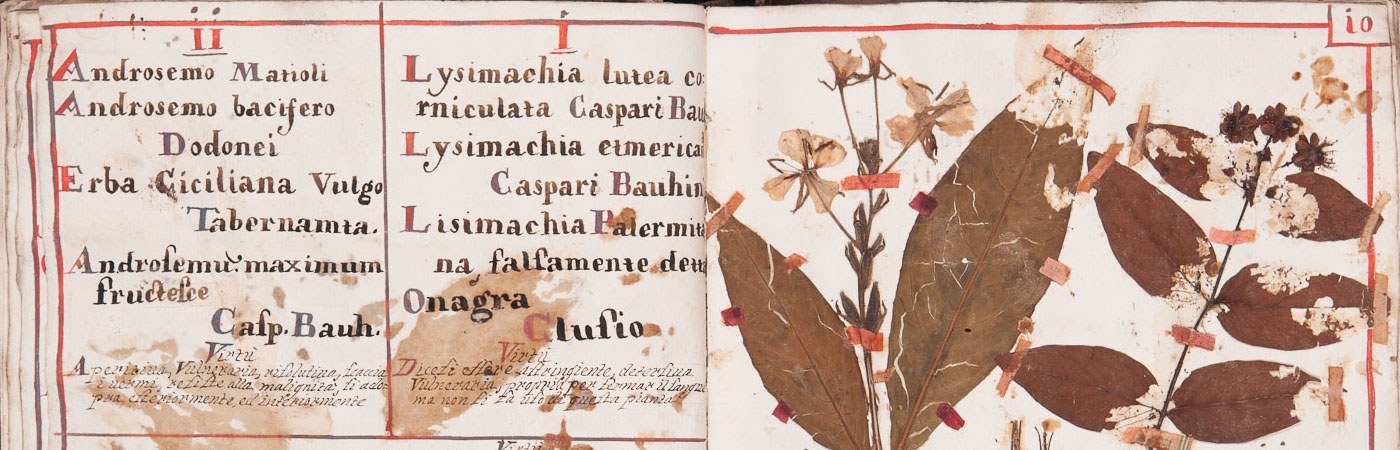 ii
Androsemo Matioli
Androsemo bacifero
Dodonei
Erba Ciciliana Vulgo
Tabernamta.
Androſemũ. maximum
fructeſce
Caſp. Bauh.
Virtù
Aperitiva, Vulneraria, riſolutiva, ſcaccia
i vermi, reſiſte alla malignità, ſi ado-
pra eſteriormente, ed interiormente
I
Lysimachia lutea co:
rniculata Caspari Bau
Lysimachia
Caspari Bauhin
Lisimachia Palermita
na falſamente dett
Onagra
Cluſio
Virtù
Diceſi eſſere aſtringente, deterſiva
Vulneraria, propria per fermar il ſangue
ma non ſi fà uſo di queſta pianta
Virtù
io